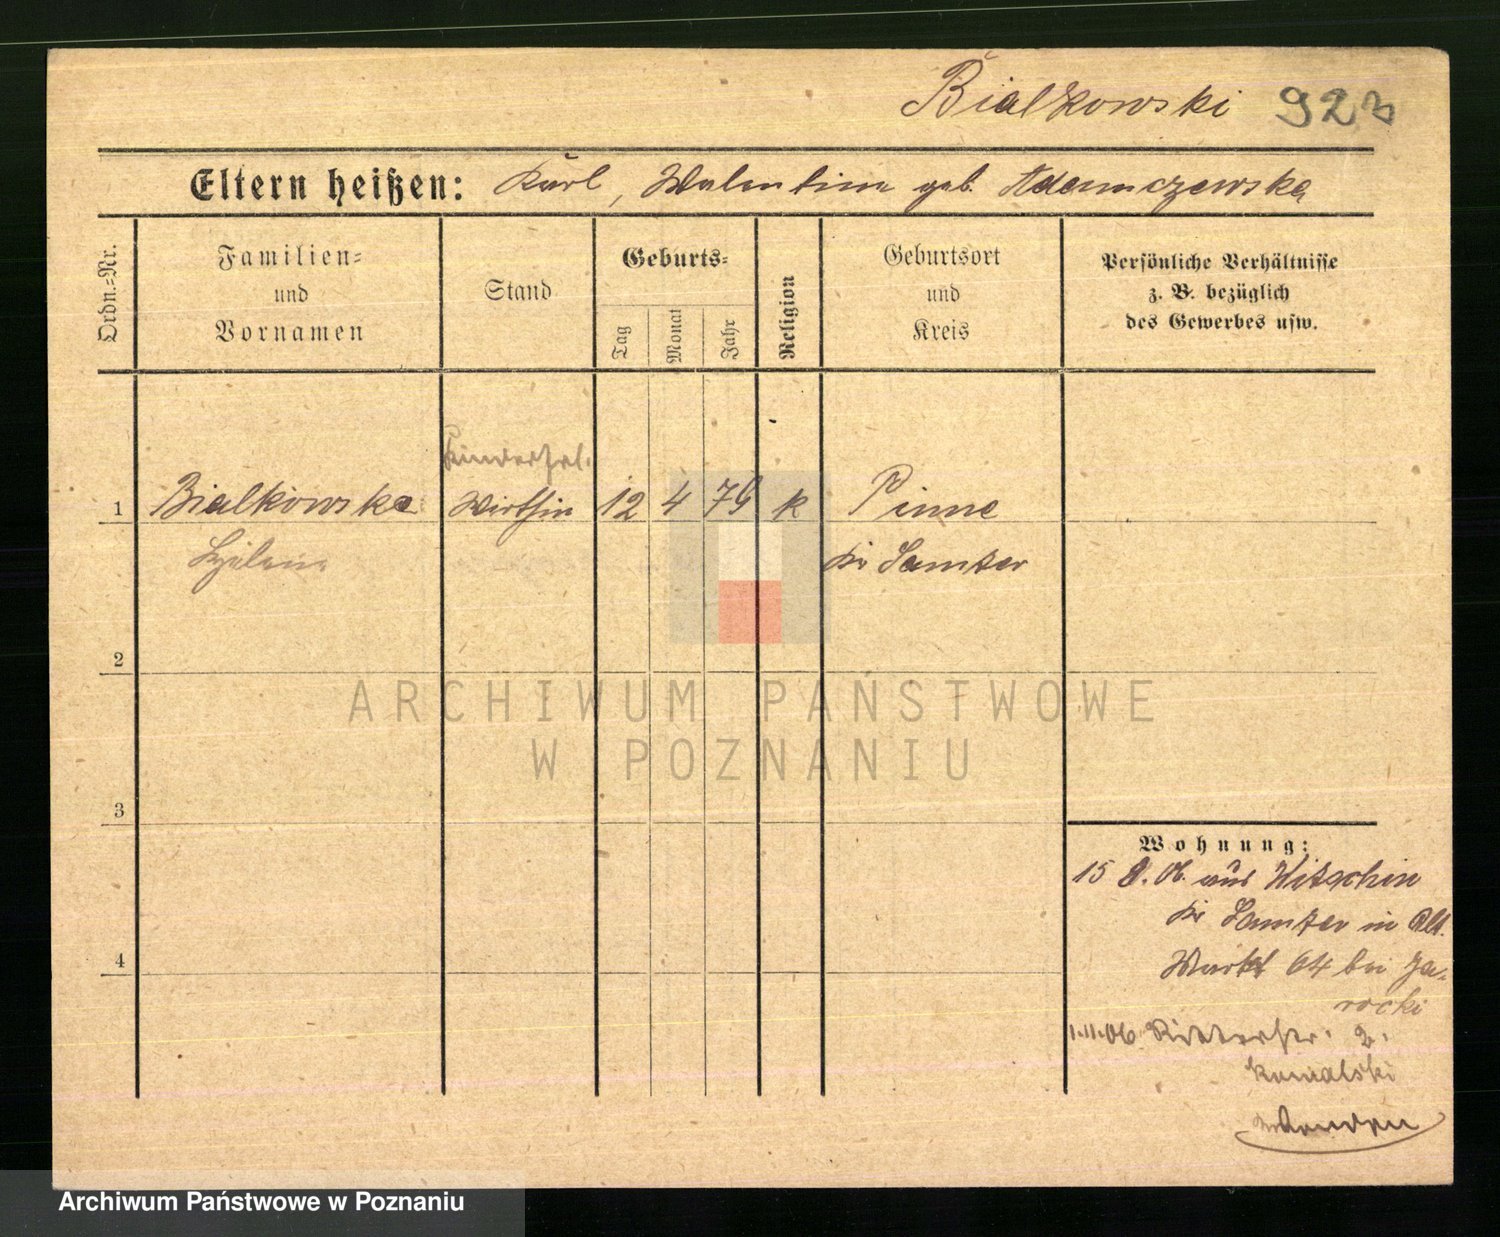 Bialkowski 923
Eltern heißen: Karl, Walentine geb. Adamczewska
Ordn.-Nr.
Familien-
und
Vornamen
Stand
Geburts-
Tag
Monat
Jahr
Religion
Geburtsort
und
Kreis
Persönliche Verhältnisse
z. B. bezüglich
des Gewerbes usw.
Kinderfrl.
1 Bialkowska Wirthin 12 4 79 k Pinne
Helene Kr Samter
2
ARCHIWUM PAŃSTWOWE
W POZNANIU
3
Wohnung:
15 8. 06. aus Kitschin
Kr Samter in Alt.
Markt 64 bei Ja-
rocki
1.11.06 Ritterstr. 2.
Kowalski
4
Archiwum Państwowe w Poznaniu